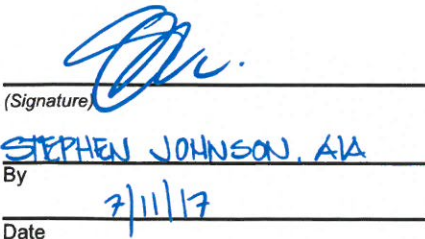 (Signature)
STEPHEN JOHNSON, AIA
By
7/11/17
Date